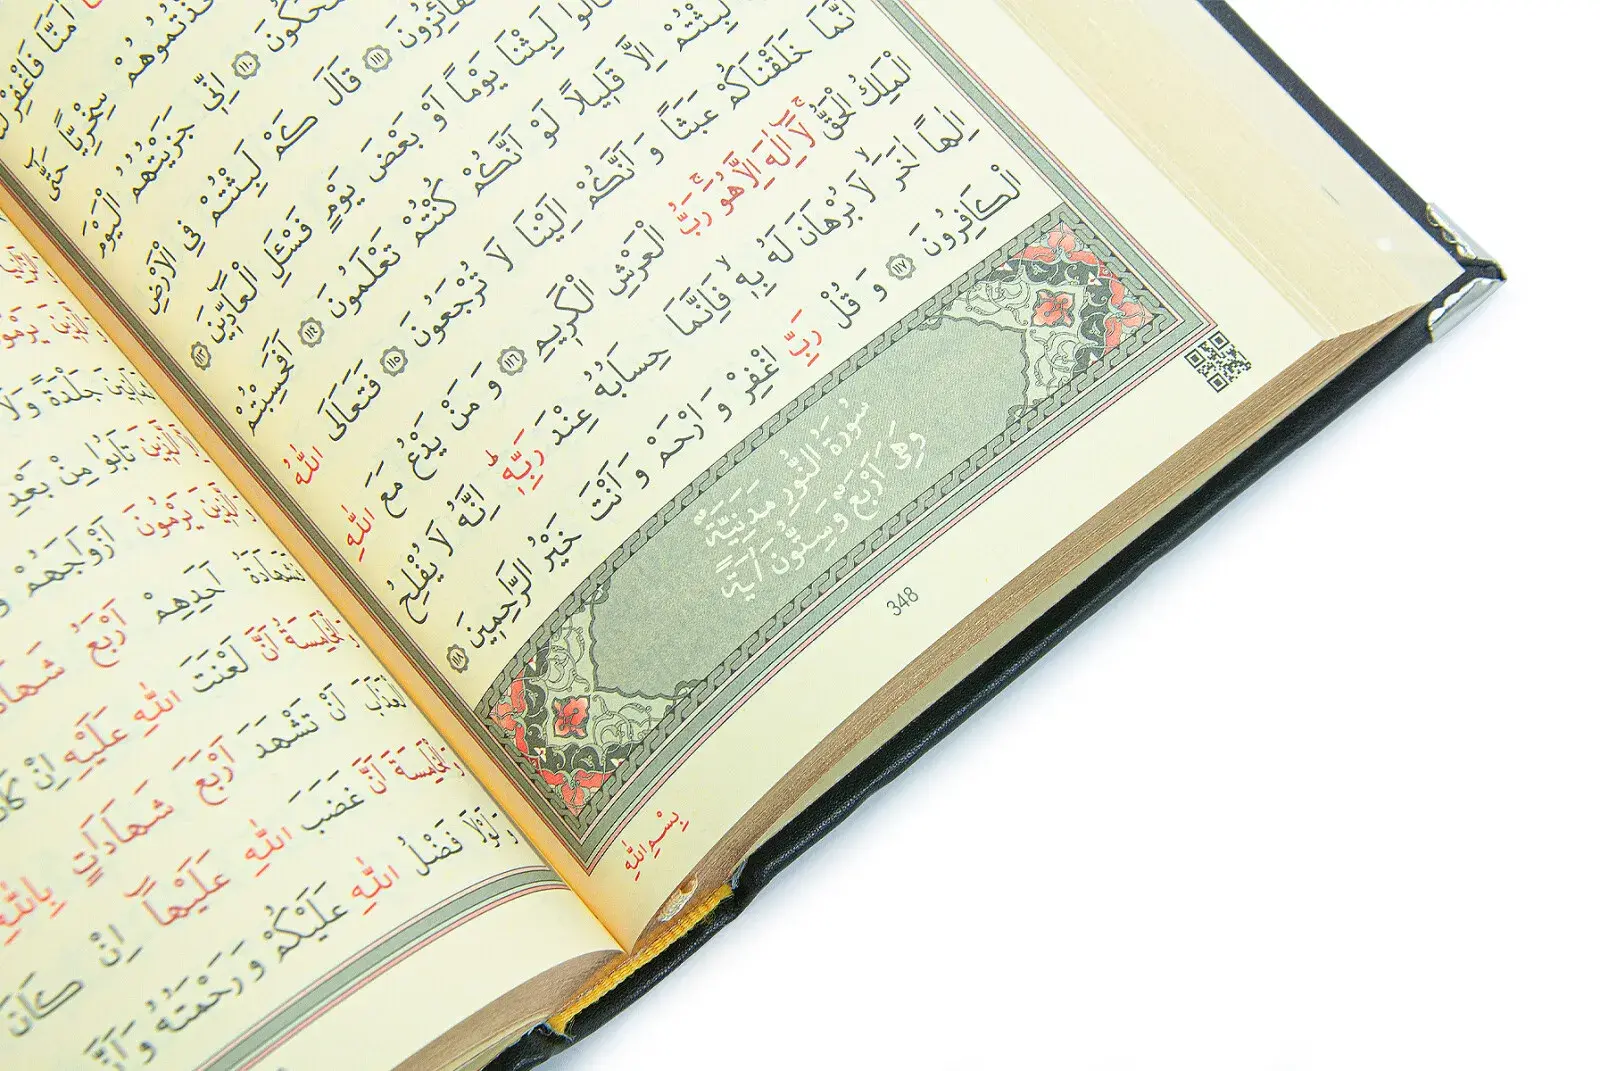 اٰمَنَّا فَاغْفِرْ لَنَا
سِخْرِيًّا حَتّٰٓى
تَضْحَكُونَ ١١٠ اِنّ۪ي جَزَيْتُهُمُ الْيَوْمَ
الْفَٓائِزُونَ ١١١ قَالَ كَمْ لَبِثْتُمْ فِي الْاَرْضِ
قَالُوا لَبِثْنَا يَوْمًا اَوْ بَعْضَ يَوْمٍ فَسْـَٔلِ الْعَٓادّ۪ينَ ١١٣
لَبِثْتُمْ اِلَّا قَل۪يلًا لَوْ اَنَّكُمْ كُنْتُمْ تَعْلَمُونَ ١١٤ اَفَحَسِبْتُمْ
اَنَّمَا خَلَقْنَاكُمْ عَبَثًا وَاَنَّكُمْ اِلَيْنَا لَا تُرْجَعُونَ ١١٥ فَتَعَالَى اللّٰهُ
الْمَلِكُ الْحَقُّۚ لَٓا اِلٰهَ اِلَّا هُوَۚ رَبُّ الْعَرْشِ الْكَر۪يمِ ١١٦ وَمَنْ يَدْعُ مَعَ اللّٰهِ
اِلٰهًا اٰخَرَۙ لَا بُرْهَانَ لَهُ بِه۪ۙ فَاِنَّمَا حِسَابُهُ عِنْدَ رَبِّه۪ۜ اِنَّهُ لَا يُفْلِحُ
الْكَافِرُونَ ١١٧ وَقُلْ رَبِّ اغْفِرْ وَارْحَمْ وَاَنْتَ خَيْرُ الرَّاحِم۪ينَ ١١٨
سُورَةُ النُّورِ مَدَنِيَّةٌ
وَهِىَ اَرْبَعٌ وَسِتُّونَ اٰيَةً
348
بِسْمِ اللّٰهِ
جَلْدَةً وَلَا
الَّذ۪ينَ تَابُوا مِنْ بَعْدِ
وَالَّذ۪ينَ يَرْمُونَ اَزْوَاجَهُمْ وَ
فَشَهَادَةُ اَحَدِهِمْ اَرْبَعُ شَهَا
وَالْخَامِسَةُ اَنَّ لَعْنَتَ اللّٰهِ عَلَيْهِ اِنْ كَانَ
الْعَذَابَ اَنْ تَشْهَدَ اَرْبَعَ شَهَادَاتٍ بِاللّٰهِ
وَالْخَامِسَةَ اَنَّ غَضَبَ اللّٰهِ عَلَيْهَٓا اِنْ كَانَ
وَلَوْلَا فَضْلُ اللّٰهِ عَلَيْكُمْ وَرَحْمَتُهُ وَاَنَّ